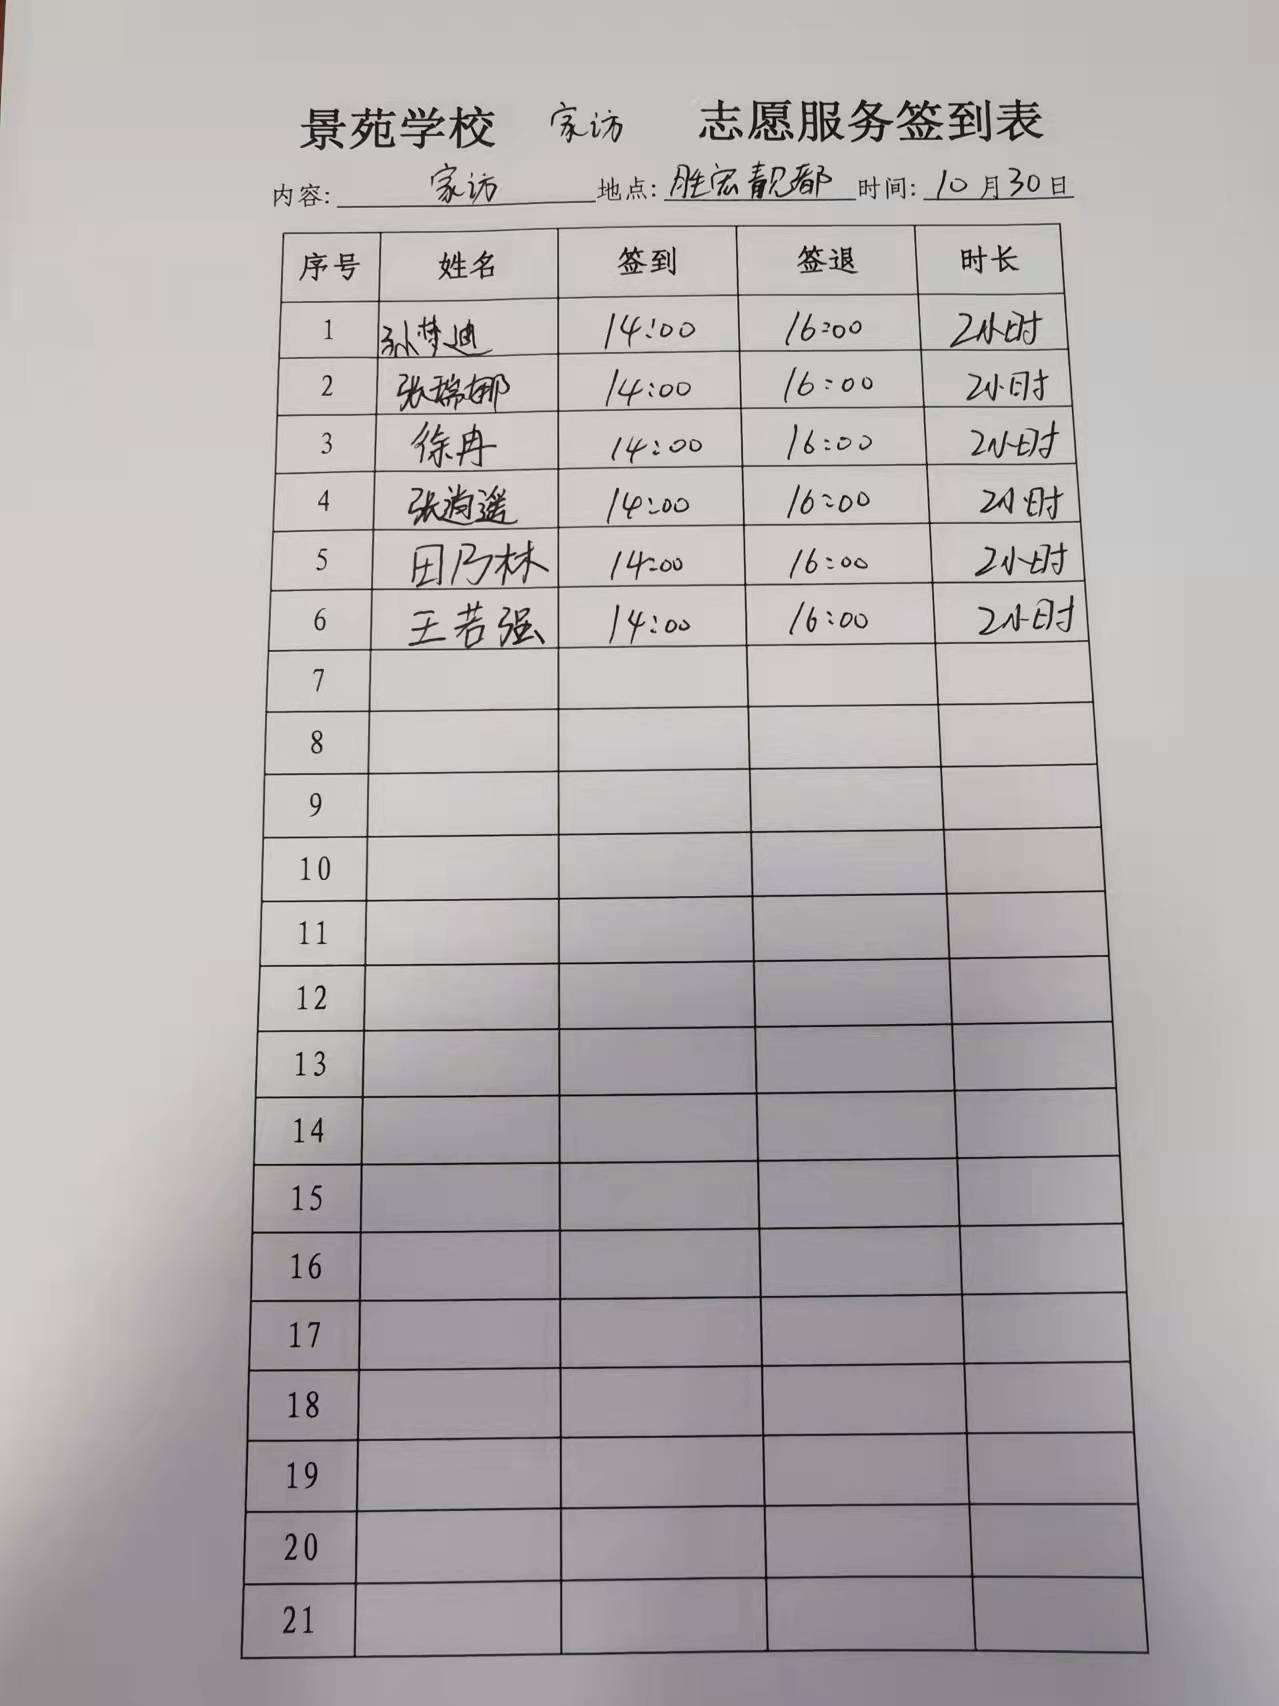 景苑学校 家访 志愿服务签到表
内容: 家访 地点: 胜宏靓都 时间: 10月30日
序号 姓名 签到 签退 时长
1 孙梦迪 14:00 16:00 2小时
2 张瑞娜 14:00 16:00 2小时
3 徐冉 14:00 16:00 2小时
4 张逍遥 14:00 16:00 2小时
5 田乃林 14:00 16:00 2小时
6 王若强 14:00 16:00 2小时
7
8
9
10
11
12
13
14
15
16
17
18
19
20
21